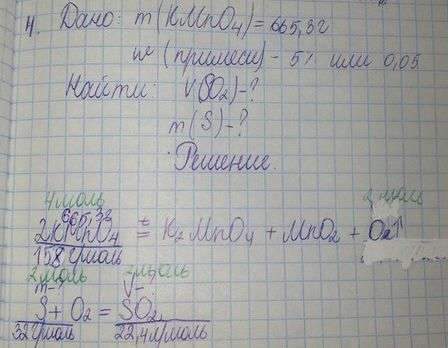 4. Дано: m(KMnO4)=665,3г
w(примеси)-5% или 0,05
Найти: V(SO2)-?
m(S)-?
Решение.
4моль 2моль
665,3г
2KMnO4 t= K2MnO4 + MnO2 + O2↑
158г/моль
2моль 2моль
m-? V-
S + O2 = SO2
32г/моль 22,4л/моль